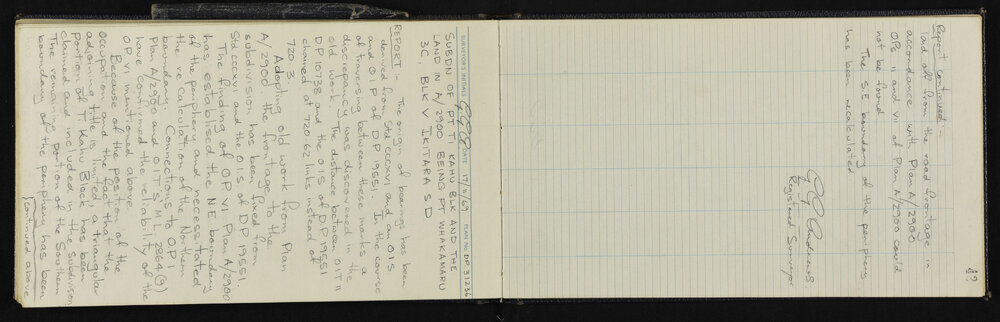 SURVEYOR'S INITIALS GGA DATE 17/11/69 PLAN No. DP. 31236
SUBDN OF PT TI KAHU BLK AND THE
LAND IN A/2900 BEING PT WHAKAMARU
3C, BLK V IKITARA S D
REPORT:- The origin of bearings has been
derived from Std cccxvi and an O I S
and O I P of D P 19551. In the course
of traversing between these marks a
discrepancy was discovered in the
old work. The distance between O I T II
D P 10738 and the O I S of D P 19551
chained at 720.62 instead of
720.3.
Adopting old work from Plan
A/2900 the frontage to the
subdivision has been fixed from
Std cccxvi and the O I S of D P 19551.
The finding of O P VI Plan A/2900
has establised the N.E. boundary
of the periphery and necessitated
the re calculation of the Northern
boundary. Connections to O P I
Plan A/2900 and O I T S M L 2864 (9)
have confirmed the reliability of the
O P VI mentioned above
Because of the position of the
occupation and the fact that the
adjoining title is limited, a triangular
portion of Ti Kahu Block has been
claimed and included in the subdivision
The remaining portion of the Southern
boundary of the periphery has been
(continued above
69
Report continued:-
laid off from the road frontage in
accordance with Plan A/2900
OPs II and VII of Plan A/2900 could
not be found
The S.E boundary of the periphery
has been recalculated
G G Andrews
Registered Surveyor